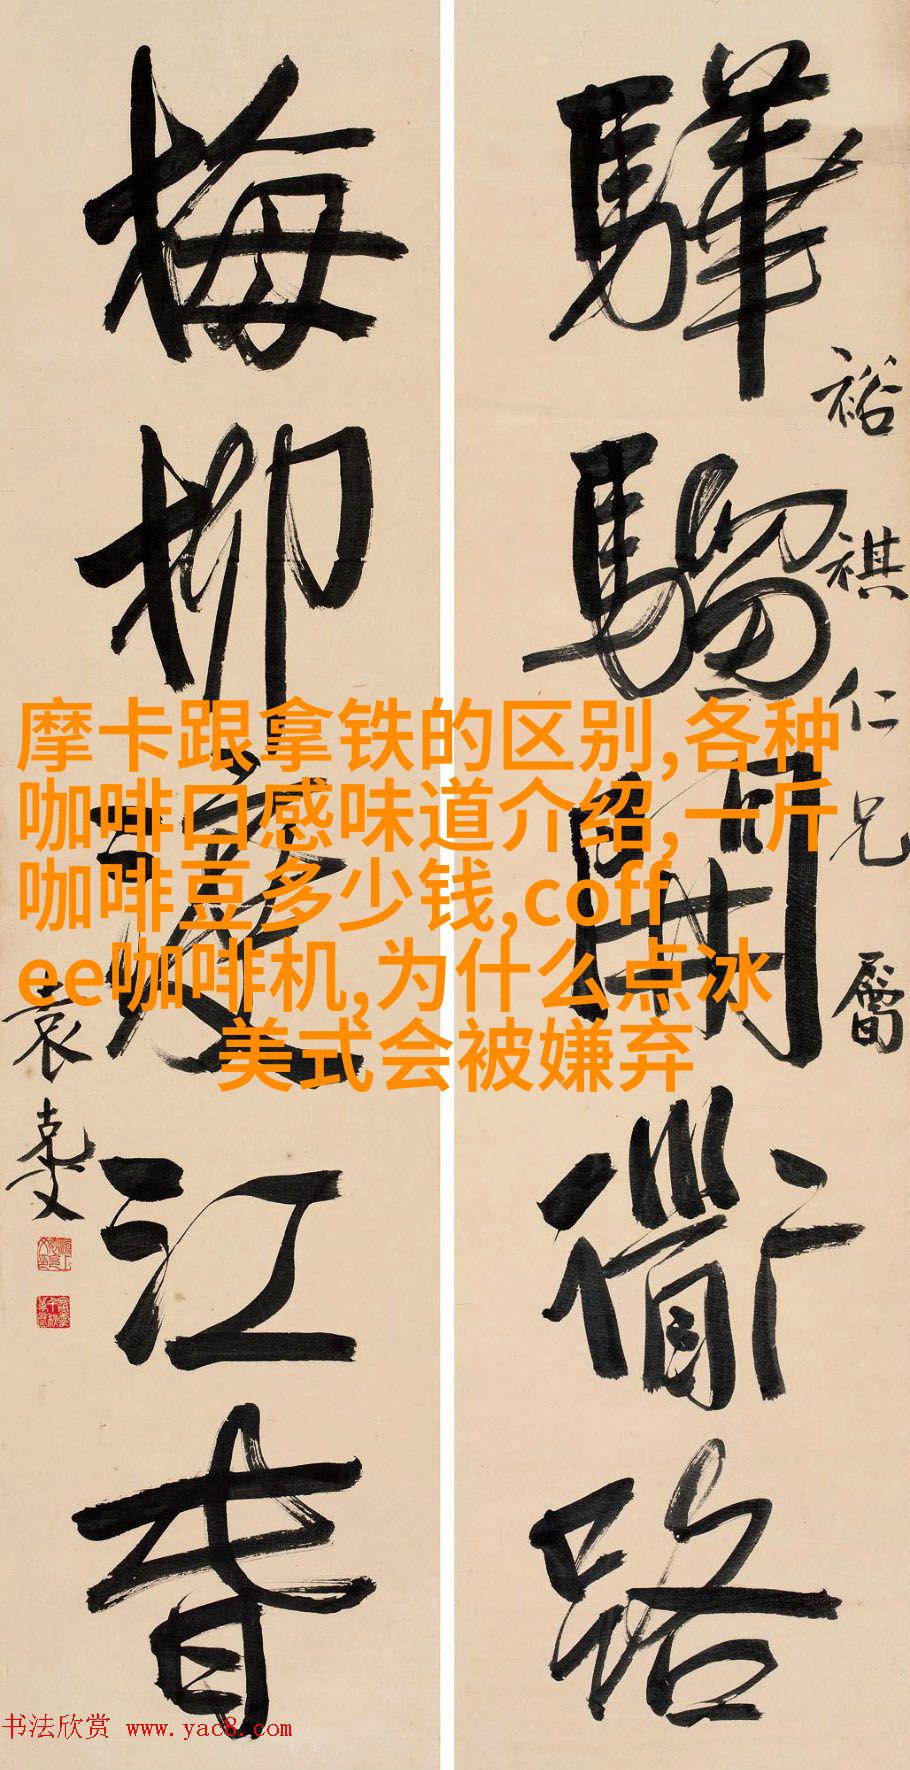 驊騮開衜路
裕祺仁兄屬
梅柳度江春
袁克文
摩卡跟拿铁的区别,各种
咖啡口感味道介绍,一斤
咖啡豆多少钱,coff
ee咖啡机,为什么点冰
美式会被嫌弃
书法欣赏 www.yac8.com